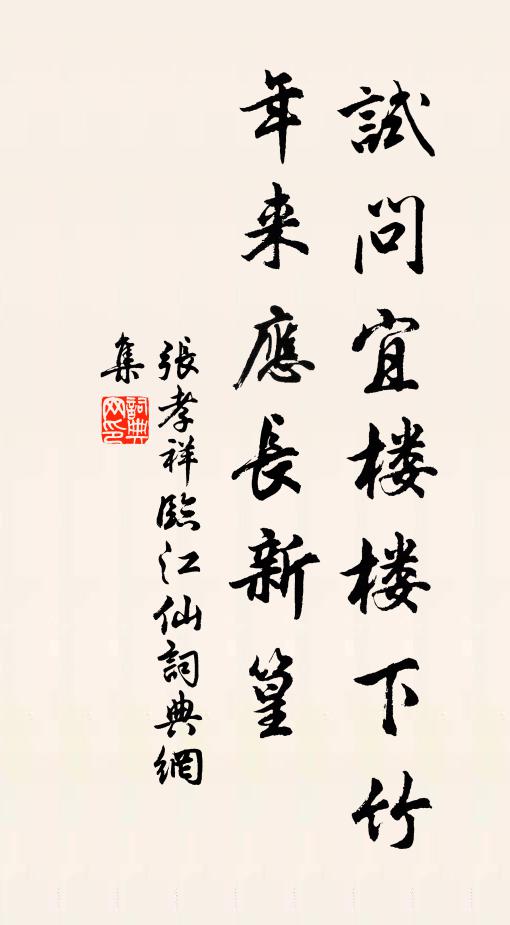 試問宜楼楼下竹
年来應長新篁
張孝祥臨江仙詞典網
集
詞典网印